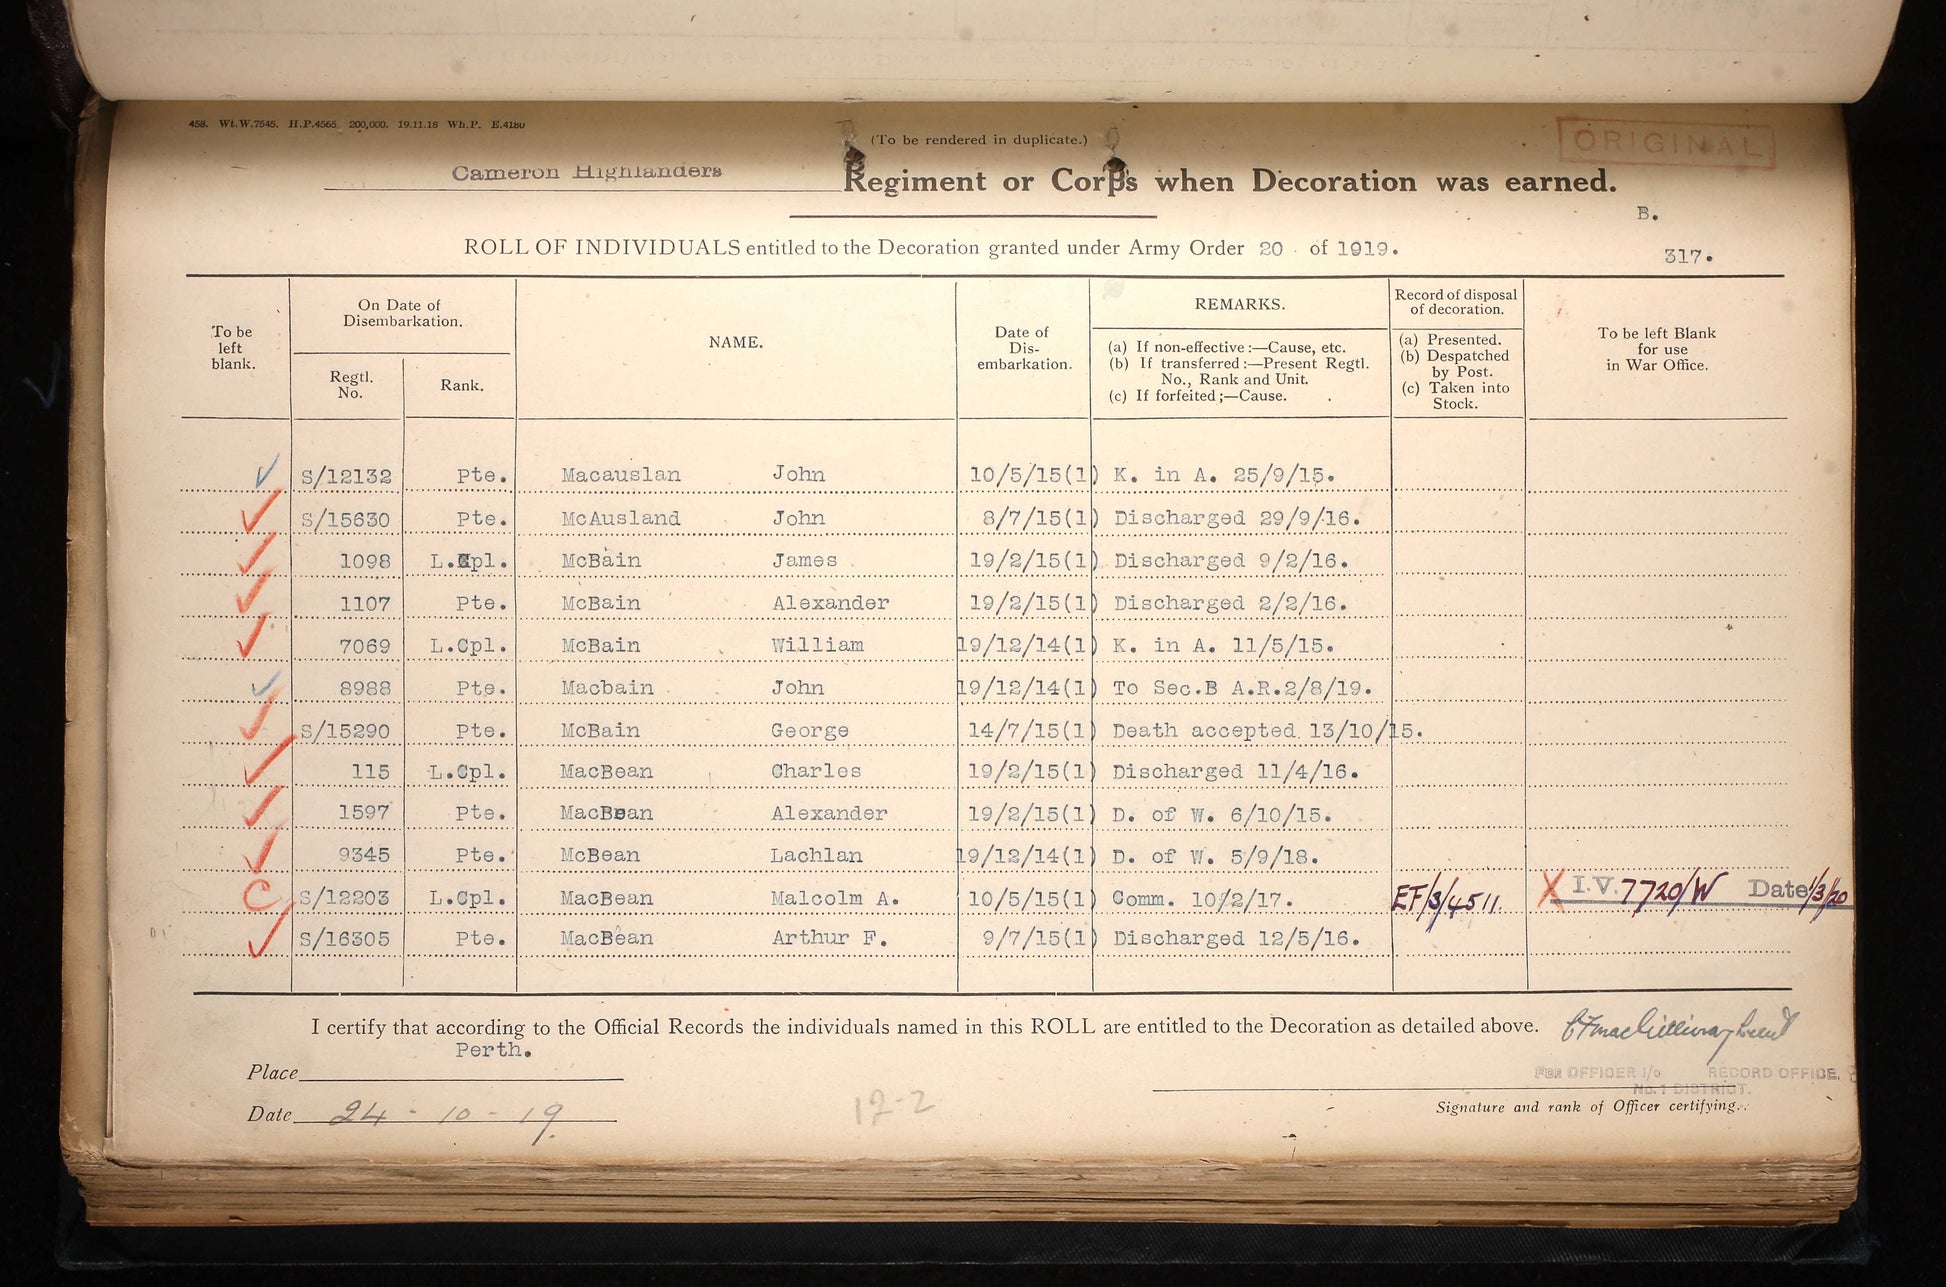 458. Wt.W.7545. H.P.4565 200,000. 19.11.18 Wh.P. E.4180
(To be rendered in duplicate.)
ORIGINAL
Cameron Highlanders Regiment or Corps when Decoration was earned.
B.
ROLL OF INDIVIDUALS entitled to the Decoration granted under Army Order 20 of 1919.
317.
To be left blank.
On Date of Disembarkation.
Regtl. No.
Rank.
NAME.
Date of Dis-embarkation.
REMARKS.
(a) If non-effective:—Cause, etc.
(b) If transferred:—Present Regtl. No., Rank and Unit.
(c) If forfeited;—Cause.
Record of disposal of decoration.
(a) Presented.
(b) Despatched by Post.
(c) Taken into Stock.
To be left Blank for use in War Office.
S/12132 Pte. Macauslan John 10/5/15(1) K. in A. 25/9/15.
S/15630 Pte. McAusland John 8/7/15(1) Discharged 29/9/16.
1098 L.Cpl. McBain James 19/2/15(1) Discharged 9/2/16.
1107 Pte. McBain Alexander 19/2/15(1) Discharged 2/2/16.
7069 L.Cpl. McBain William 19/12/14(1) K. in A. 11/5/15.
8988 Pte. Macbain John 19/12/14(1) To Sec.B A.R.2/8/19.
S/15290 Pte. McBain George 14/7/15(1) Death accepted 13/10/15.
115 L.Cpl. MacBean Charles 19/2/15(1) Discharged 11/4/16.
1597 Pte. MacBean Alexander 19/2/15(1) D. of W. 6/10/15.
9345 Pte. McBean Lachlan 19/12/14(1) D. of W. 5/9/18.
C S/12203 L.Cpl. MacBean Malcolm A. 10/5/15(1) Comm. 10/2/17. EF/3/4511. X I.V. 7720/W Date 1/3/20
S/16305 Pte. MacBean Arthur F. 9/7/15(1) Discharged 12/5/16.
I certify that according to the Official Records the individuals named in this ROLL are entitled to the Decoration as detailed above.
Perth.
Place
FOR OFFICER I/c RECORD OFFICE,
No. 1 DISTRICT.
Date 24-10-19
12-2
Signature and rank of Officer certifying.